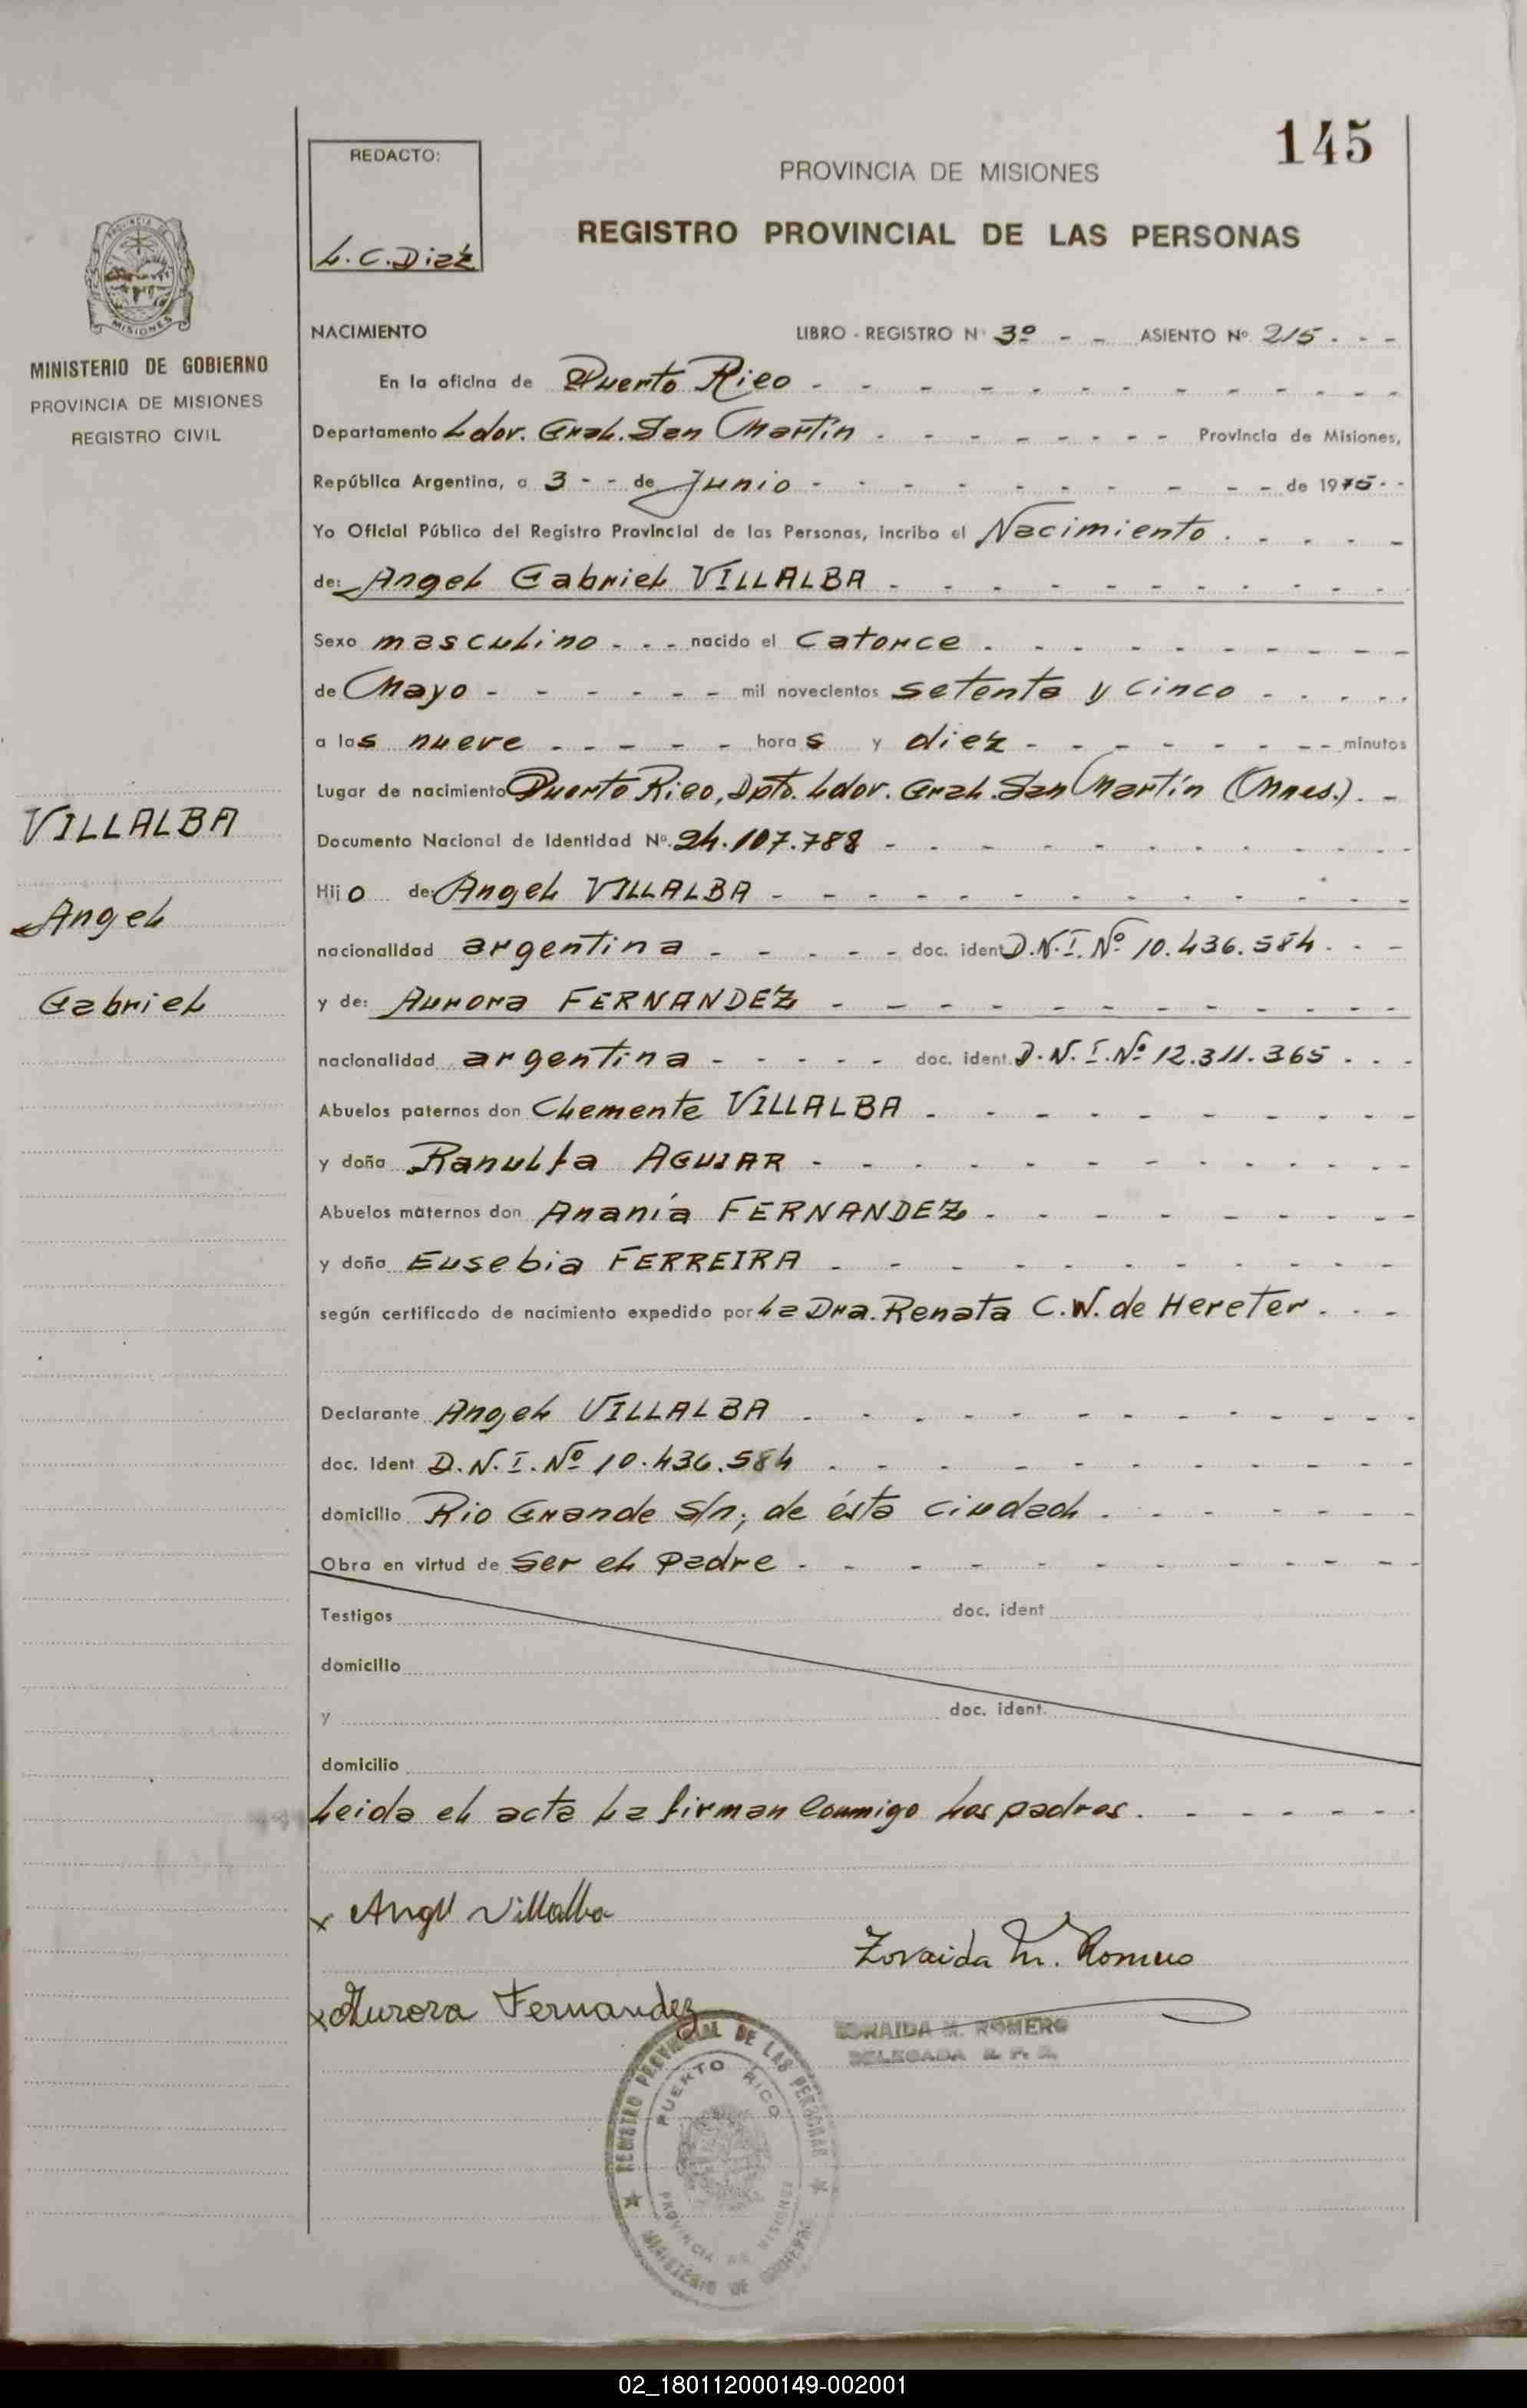 145
REDACTO:
L.C.Diaz
PROVINCIA DE MISIONES
REGISTRO PROVINCIAL DE LAS PERSONAS
MISIONES
MINISTERIO DE GOBIERNO
PROVINCIA DE MISIONES
REGISTRO CIVIL
NACIMIENTO LIBRO - REGISTRO Nº 3º - - ASIENTO Nº 215 - - -
En la oficina de Puerto Rico
Departamento Ldor. Gral. San Martín Provincia de Misiones,
República Argentina, a 3 - - de Junio de 1975 - -
Yo Oficial Público del Registro Provincial de las Personas, incribo el Nacimiento
de: Angel Gabriel VILLALBA
Sexo masculino - - - nacido el catorce
de Mayo mil novecientos setenta y cinco
a las nueve horas y diez minutos
Lugar de nacimiento Puerto Rico, Dpto. Ldor. Gral. San Martín (Mnes.). -
Documento Nacional de Identidad Nº. 24.107.788
Hijo de: Angel VILLALBA
nacionalidad argentina doc. ident. D.N.I. Nº 10.436.584
y de: Aurora FERNANDEZ
nacionalidad argentina doc. ident. D.N.I. Nº 12.311.365
Abuelos paternos don Clemente VILLALBA
y doña Ranulfa AGUIAR
Abuelos maternos don Ananía FERNANDEZ
y doña Eusebia FERREIRA
según certificado de nacimiento expedido por la Dra. Renata C.W. de Hereter
Declarante Angel VILLALBA
doc. Ident D.N.I. Nº 10.436.584
domicilio Rio Grande s/n; de ésta ciudad
Obra en virtud de ser el padre
Testigos doc. ident
domicilio
y doc. ident.
domicilio
Leida el acta la firman conmigo los padres.
VILLALBA
Angel
Gabriel
x Angel Villalba
Zoraida M. Romero
x Aurora Fernandez
ZORAIDA M. ROMERO
DELEGADA R. P. P.
REGISTRO PROVINCIAL DE LAS PERSONAS
PUERTO RICO
PROVINCIA DE MISIONES
MINISTERIO DE GOBIERNO
02_180112000149-002001